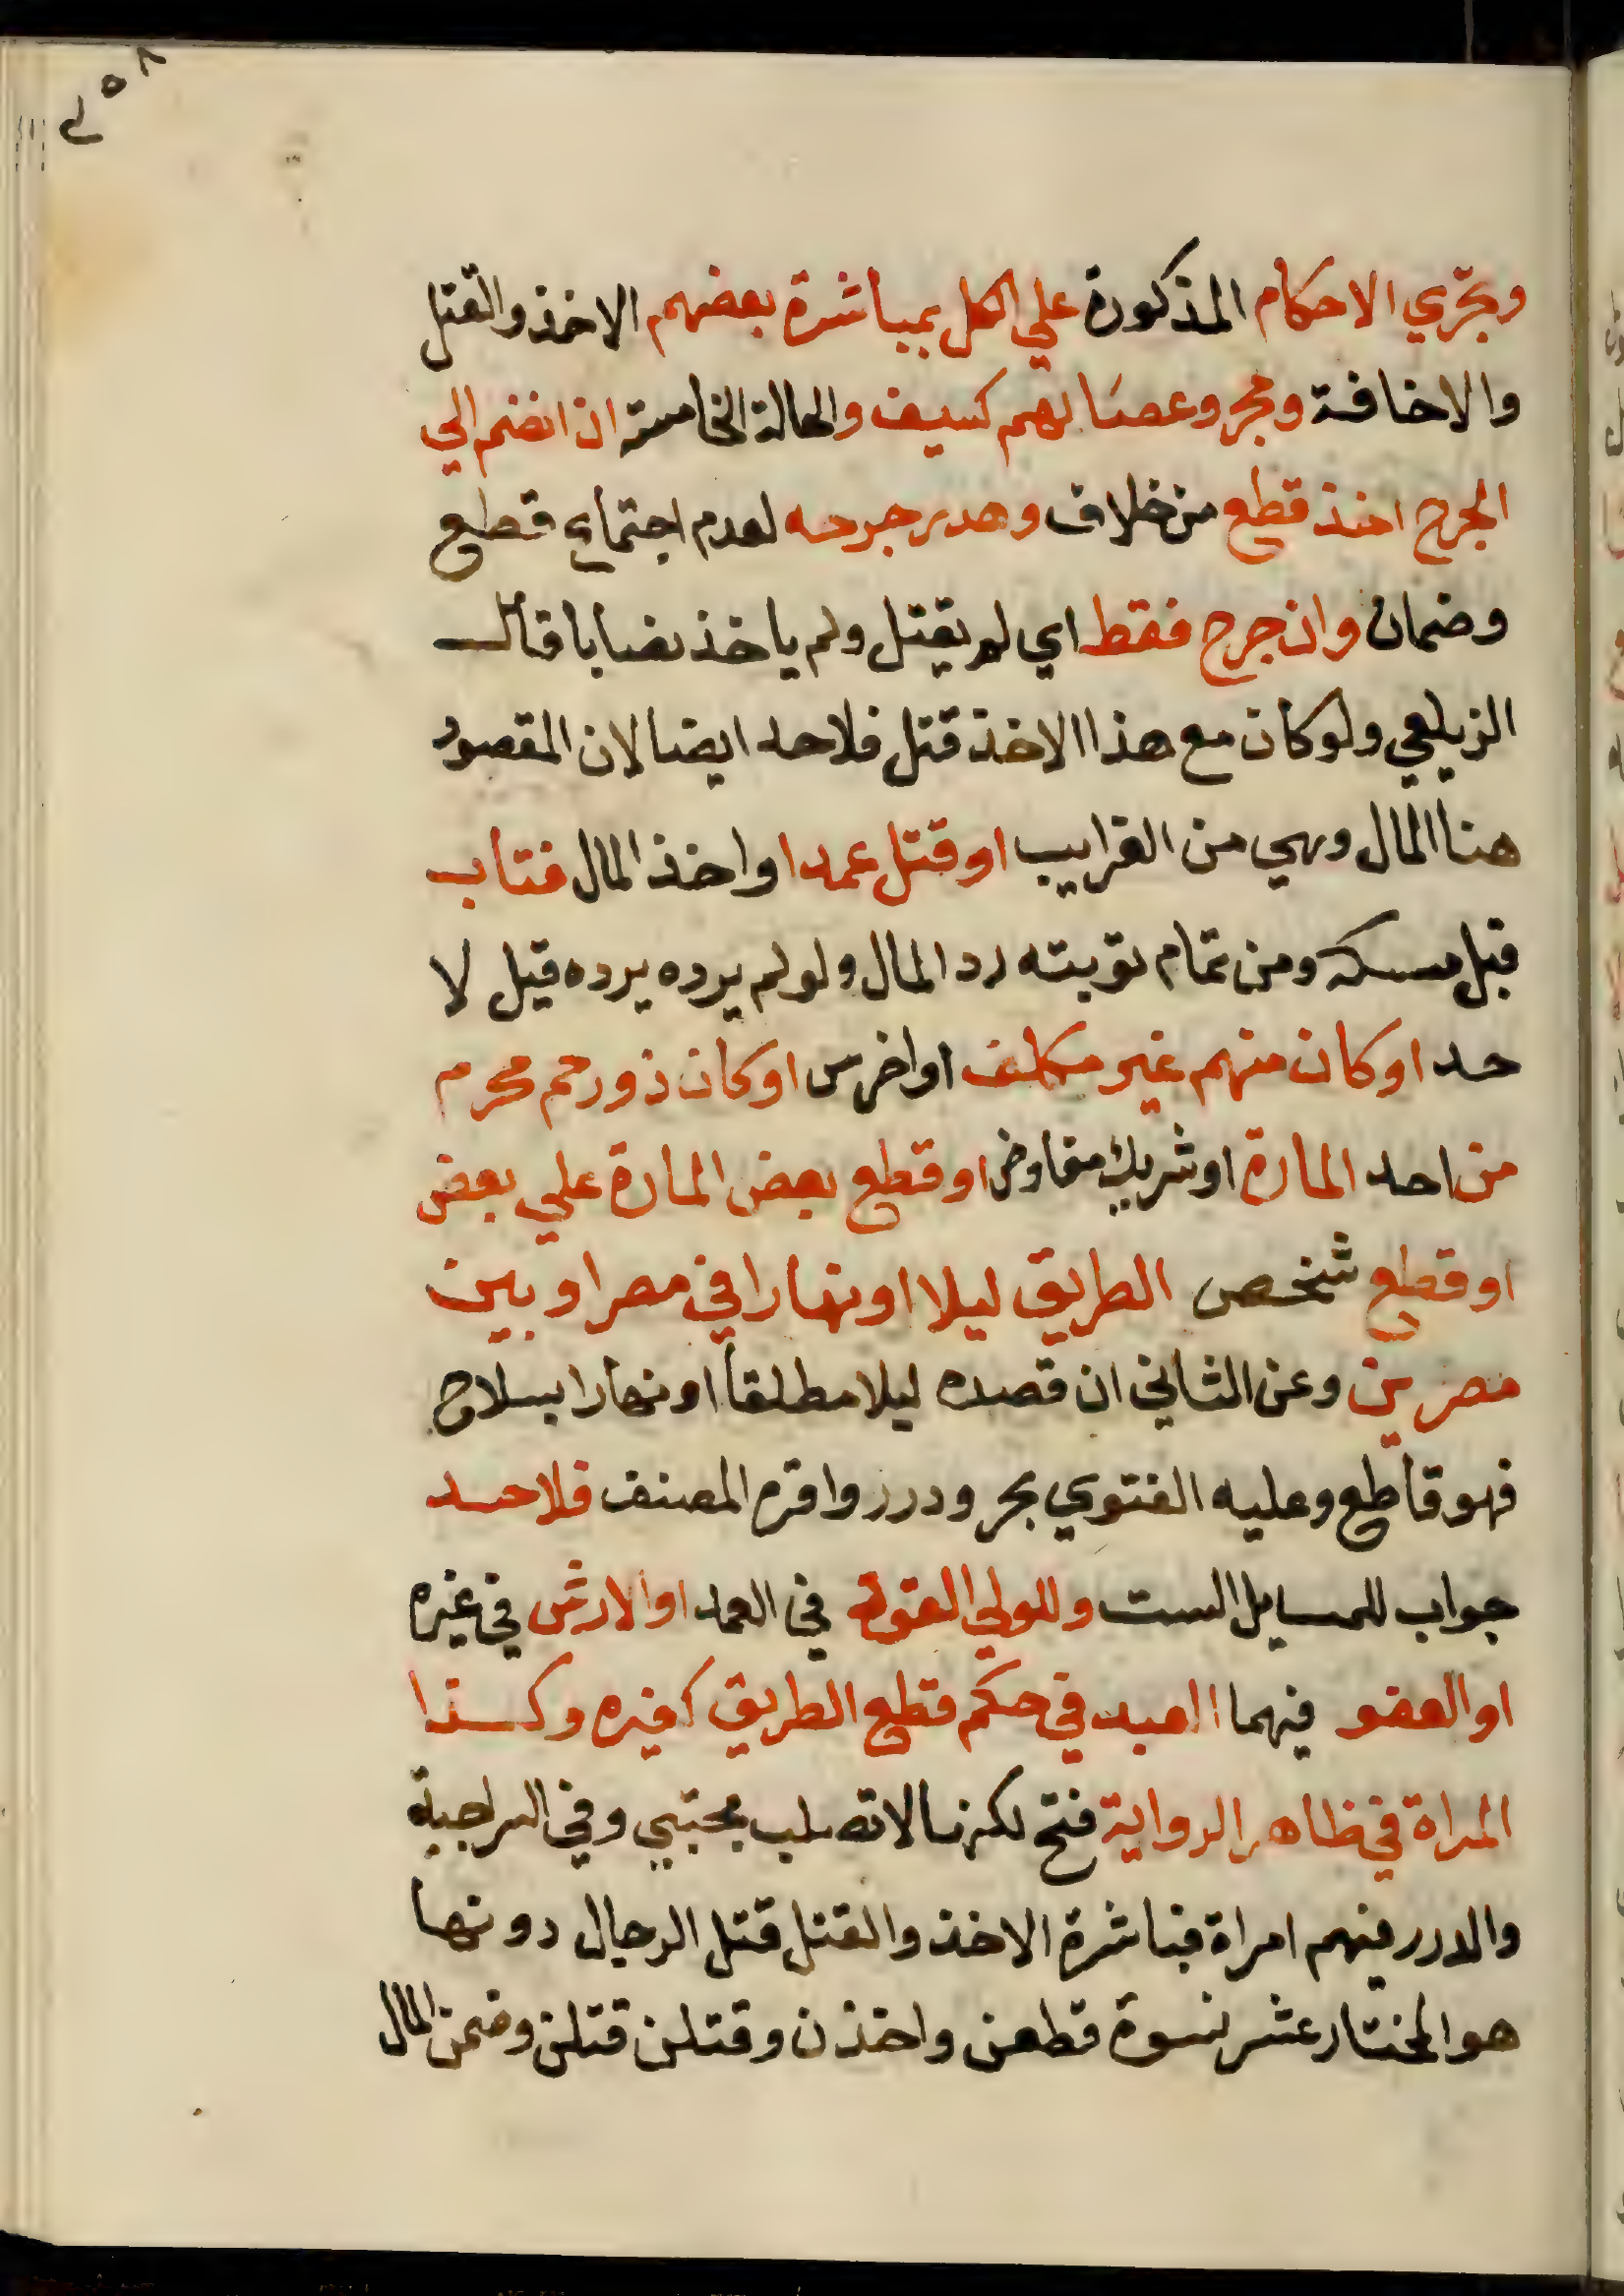 وتجري الاحكام المذكورة علي الكل بمباشرة بعضهم الاخذ والقتل
والاخافة وحجر وعصا لهم كسيف والحالة الخامسة ان انضم الي
الجرح اخذ قطع من خلاف وهدر جرحه لعدم اجتماع قطع
وضمان وان جرح فقط اي لم يقتل ولم ياخذ نصابا قال
الزيلعي ولو كان مع هذا الاخذ قتل فلا حد ايضا لان المقصود
هنا المال وهي من الغرايب او قتل عمدا واخذ المال فتاب
قبل مسكه ومن تمام توبته رد المال ولو لم يرده يرده قيل لا
حد او كان منهم غير مكلف او اخرس او كان ذو رحم محرم
من احد المارة او شريك مفاوض او قطع بعض المارة علي بعض
او قطع شخص الطريق ليلا او نهارا في مصر او بين
مصرين وعن الثاني ان قصده ليلا مطلقا او نهارا بسلاح
فهو قاطع وعليه الفتوي بحر ودرر واقره المصنف فلا حد
جواب للمسايل الست وللولي القود في العمد او الارش في غيره
او العفو فيهما العبد في حكم قطع الطريق كغيره وكذا
المراة في ظاهر الرواية فتح لكنها لا تصلب مجتبي وفي السراجية
والدرر فيهم امراة فباشرة الاخذ والقتل قتل الرجال دونها
هو المختار عشر نسوة قطعن واخذن وقتلن قتلن وضمن المال